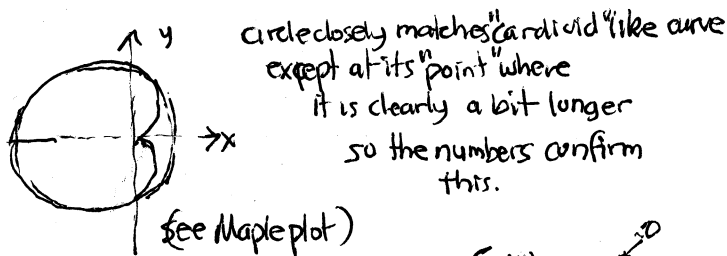 y
circle closely matches "cardioid" like curve
except at its "point" where
it is clearly a bit longer
x
so the numbers confirm
this.
(see Maple plot)